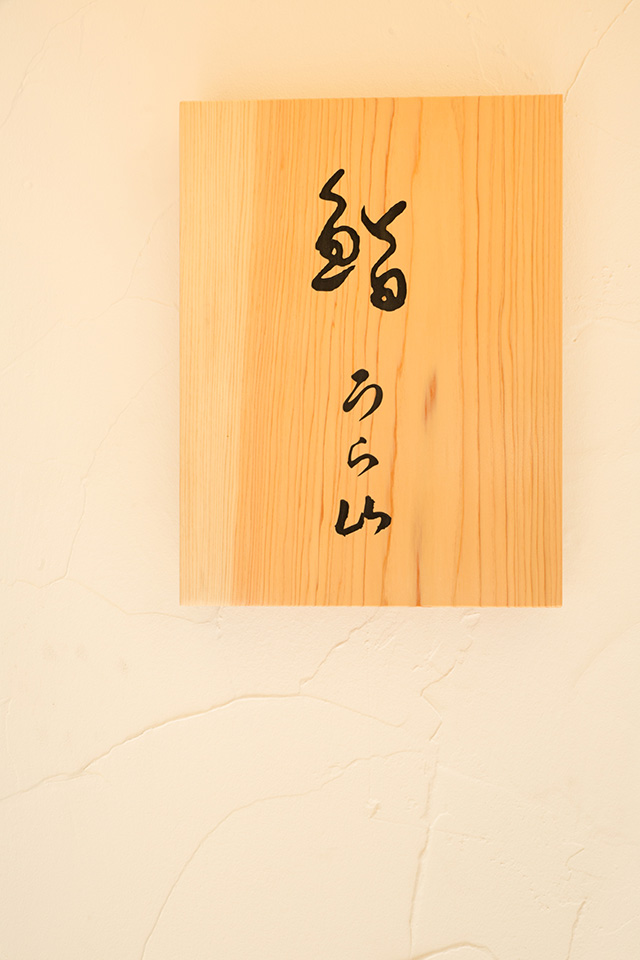 鮨
うら山